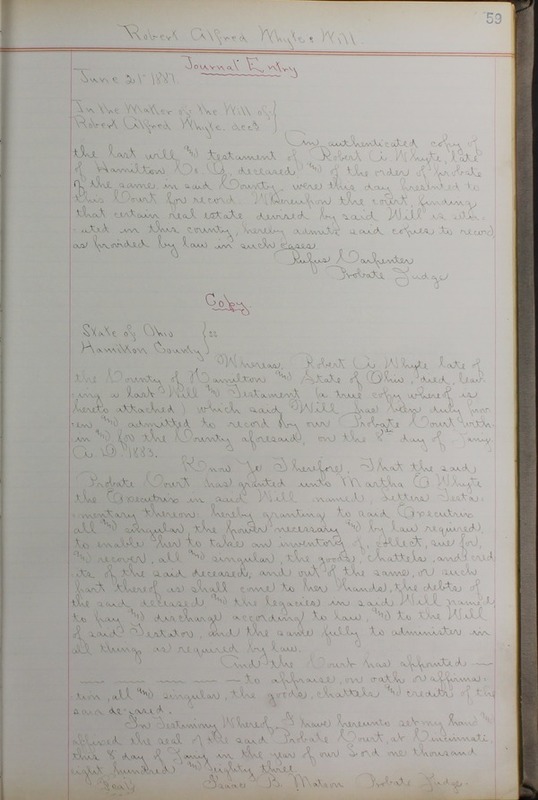 59
Robert Alfred Whyte's Will.
Journal Entry
June 21st 1887.
In the Matter of the Will of
Robert Alfred Whyte decd
An authenticated copy of
the last will & testament of Robert A Whyte, late
of Hamilton Co O, deceased & of the order of probate
of the same in said County were this day presented to
this Court for record. Whereupon the court, finding
that certain real estate devised by said Will is situ-
-ated in this county, hereby admits said copies to record
as provided by law in such cases.
Rufus Carpenter
Probate Judge
Copy.
State of Ohio } ss
Hamilton County
Whereas, Robert A Whyte late of
the County of Hamilton & State of Ohio, died, leav-
-ing a last Will & Testament (a true copy whereof is
hereto attached) which said Will has been duly prov-
-en & admitted to record by our Probate Court with-
in & for the County aforesaid, on the 8th day of Jany
A.D 1883.
Know Ye Therefore, That the said
Probate Court has granted unto Martha A Whyte
the Executrix in said Will named, Letters Testa-
-mentary thereon, hereby granting to said Executrix
all & singular the power necessary & by law required,
to enable her to take an inventory of, collect, sue for,
& recover, all & singular, the goods, chattels, and cred-
-its of the said deceased, and out of the same, or such
part thereof as shall come to her hands, the debts of
the said deceased & the legacies in said Will named,
to pay & discharge according to law, & to the Will
of said Testator, and the same fully to administer in
all things as required by law.
And the Court has appointed —
— — — — to appraise, on oath or affirma-
-tion, all & singular, the goods, chattels & credits of the
said deceased.
In Testimony Whereof, I have hereunto set my hand &
affixed the seal of the said Probate Court, at Cincinnati,
this 8 day of Jany in the year of our Lord one thousand
eight hundred & eighty three.
Seal Isaac B Matson Probate Judge.